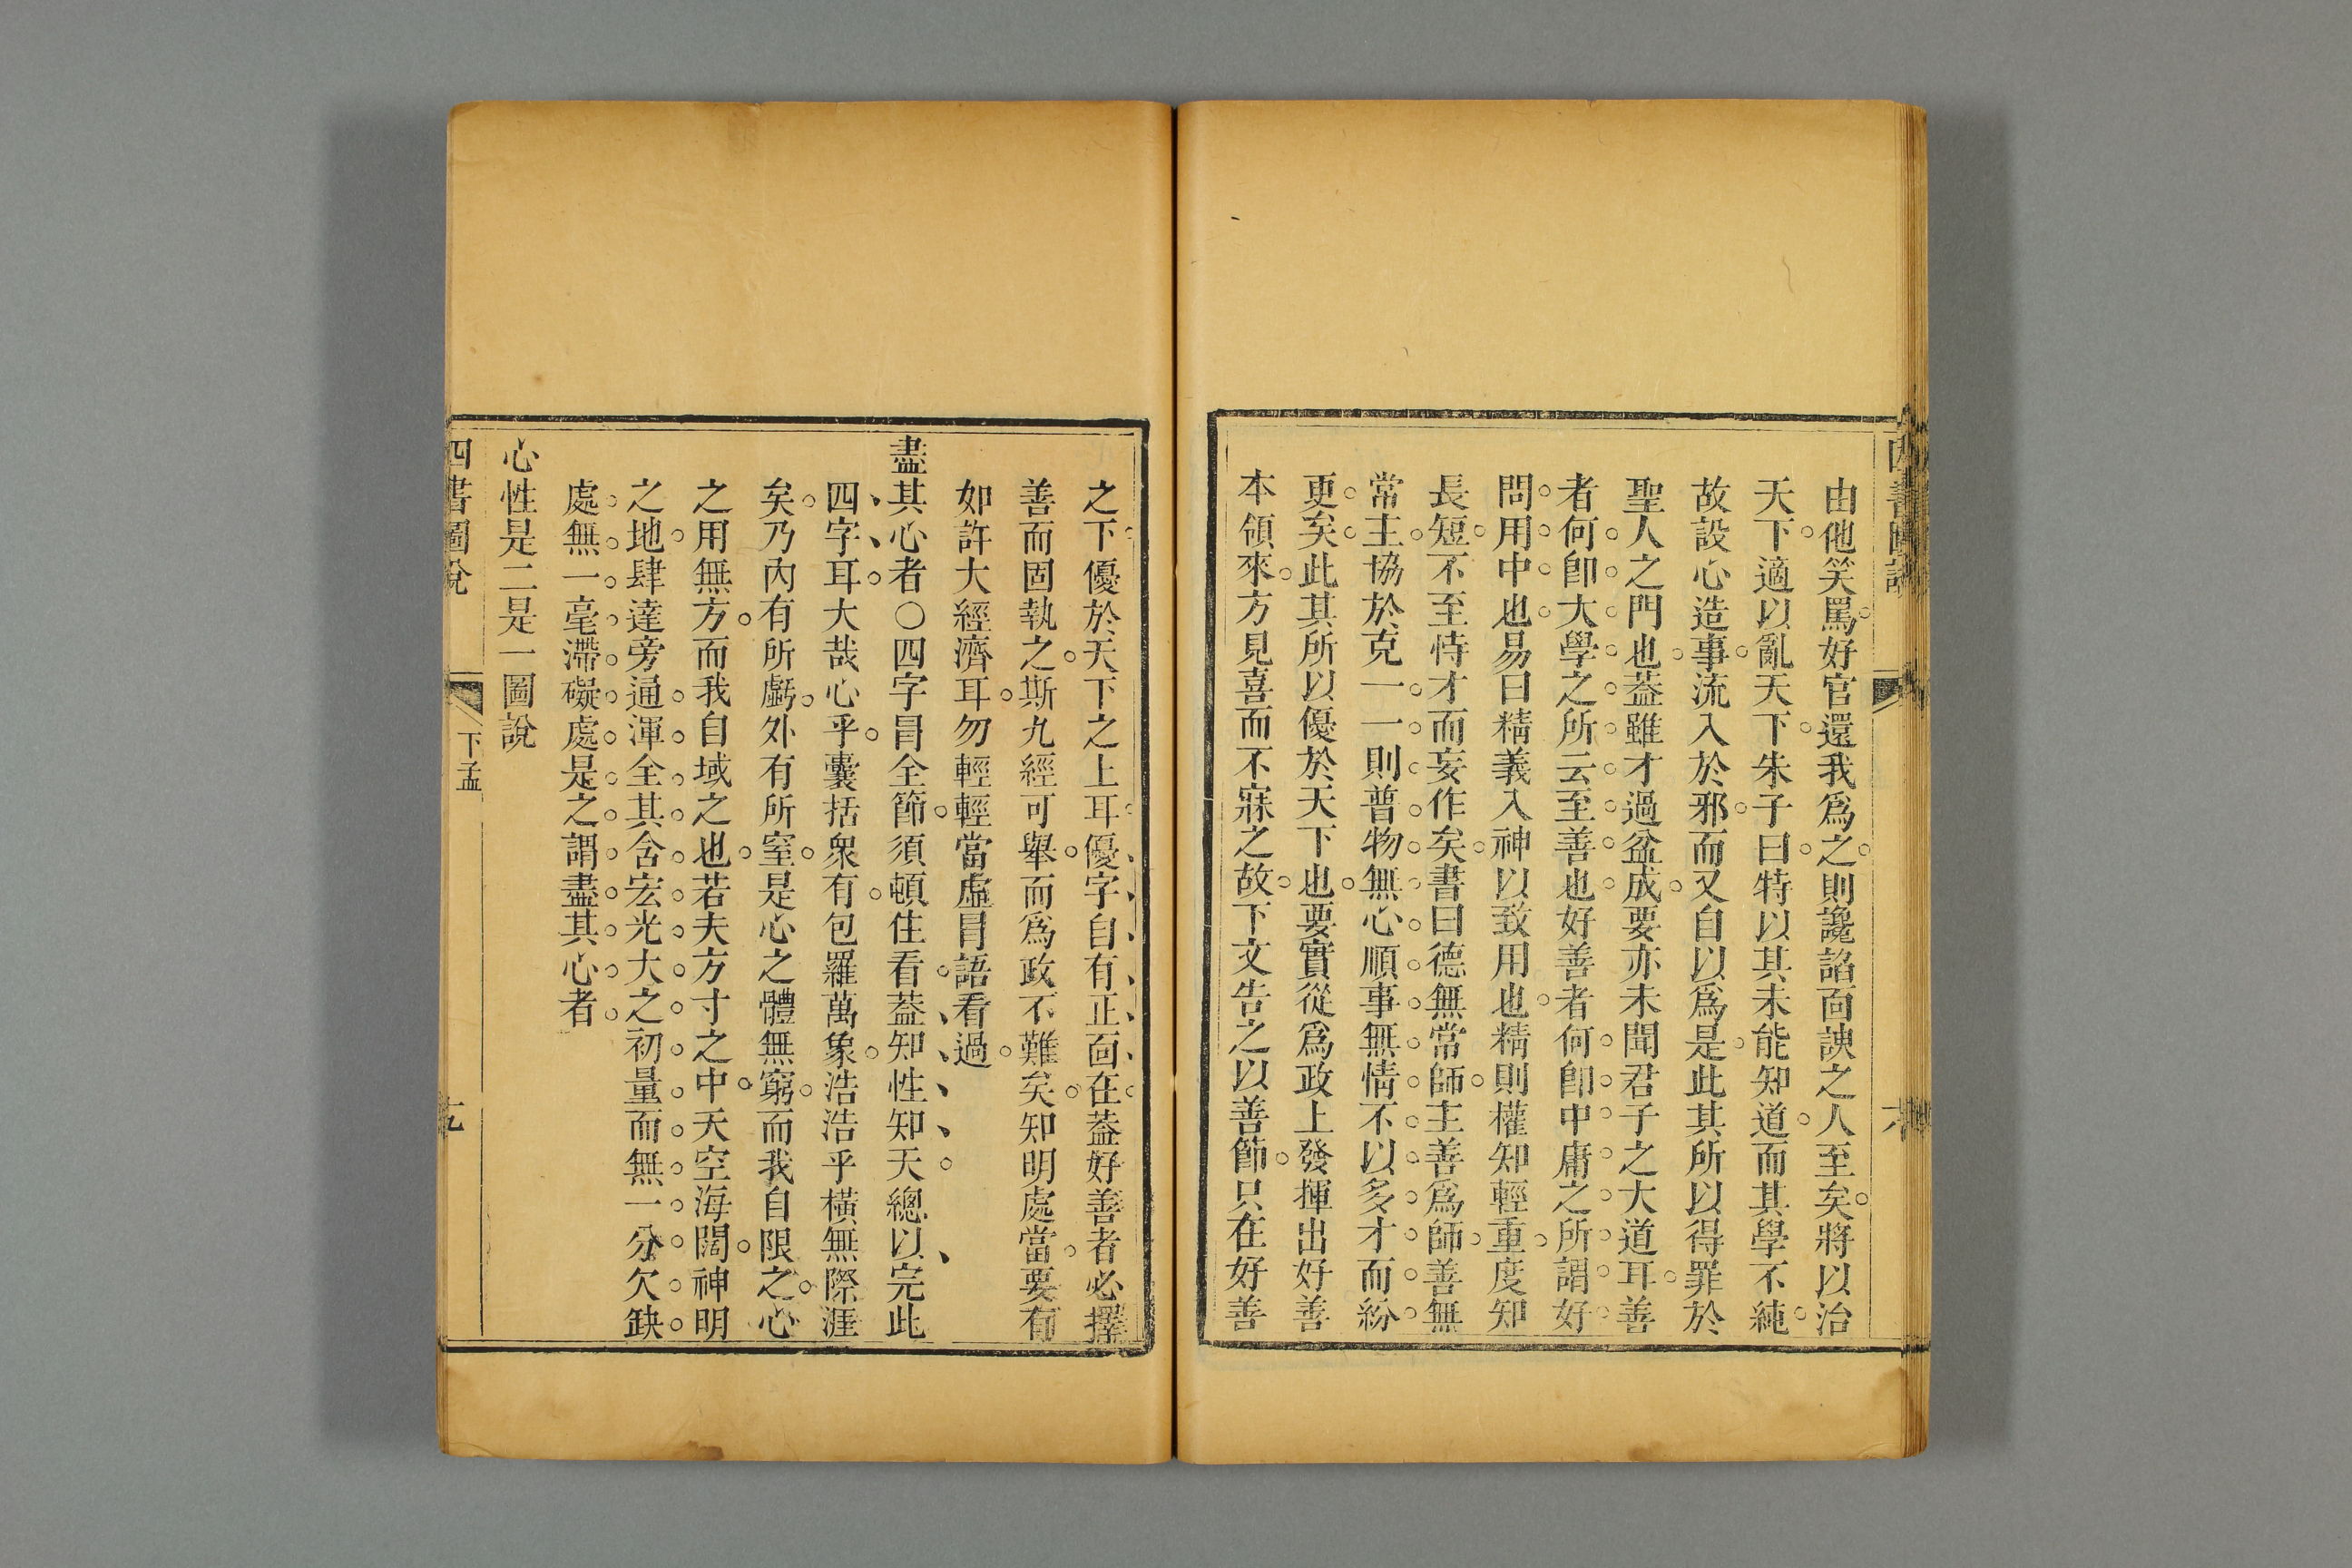 由他笑罵好官還我爲之則讒諂面諛之人至矣將以治
天下適以亂天下朱子曰特以其未能知道而其學不純
故設心造事流入於邪而又自以爲是此其所以得罪於
聖人之門也葢雖才過盆成要亦未聞君子之大道耳善
者何卽大學之所云至善也好善者何卽中庸之所謂好
問用中也易曰精義入神以致用也精則權知輕重度知
長短不至恃才而妄作矣書曰德無常師主善爲師善無
常主協於克一一則普物無心順事無情不以多才而紛
更矣此其所以優於天下也要實從爲政上發揮出好善
本領來方見喜而不寐之故下文告之以善節只在好善
之下優於天下之上耳優字自有正面在葢好善者必擇
善而固執之斯九經可舉而爲政不難矣知明處當要有
如許大經濟耳勿輕輕當虛冒語看過
盡其心者○四字冒全節須頓住看葢知性知天總以完此
四字耳大哉心乎囊括衆有包羅萬象浩浩乎橫無際涯
矣乃內有所虧外有所窒是心之體無窮而我自限之心
之用無方而我自域之也若夫方寸之中天空海闊神明
之地肆達旁通渾全其含宏光大之初量而無一分欠缺
處無一毫滯礙處是之謂盡其心者
心性是二是一圖說
四書圖說
下孟
九